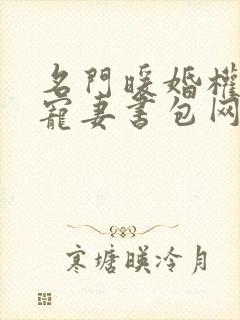 名門暖婚權
寵妻書包网
寒塘映冷月